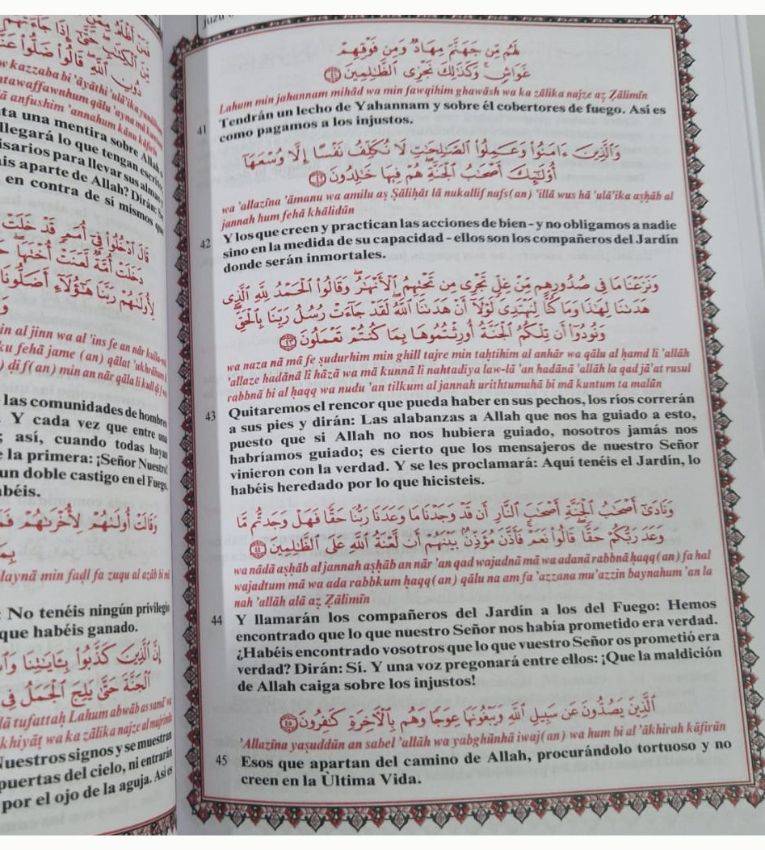 juzu
فَمَنْ أَظْلَمُ مِمَّنِ
مِّنَ ٱلْكِتَٰبِ حَتَّىٰٓ إِذَا جَآءَتْهُمْ
دُونِ ٱللَّهِ قَالُوا۟ ضَلُّوا۟ عَنَّا
kazzaba bi 'āyāthi 'ulā'ika
yatawaffawnahum qālu 'ayna mā
'alā anfushim 'annahum kānu kāfirīn
una mentira sobre Allah
llegará lo que tengan escrito
emisarios para llevar sus almas
aparte de Allah? Dirán: Se
en contra de sí mismos que
قَالَ ٱدْخُلُوا۟ فِىٓ أُمَمٍ قَدْ خَلَتْ
دَخَلَتْ أُمَّةٌ لَّعَنَتْ أُخْتَهَا
لِأُولَىٰهُمْ رَبَّنَا هَٰٓؤُلَآءِ أَضَلُّونَا
in al jinn wa al 'ins fe an nār
fehā jame (an) qālat 'ukhrāhum
dif(an) min an nār qāla li kull
las comunidades de hombres
Y cada vez que entre una
; así, cuando todas hayan
la primera: ¡Señor Nuestro!
un doble castigo en el Fuego.
وَقَالَتْ أُولَىٰهُمْ لِأُخْرَىٰهُمْ فَمَا
alaynā min faḍl fa zuqu al azāb bi mā
No tenéis ningún privilegio
que habéis ganado.
إِنَّ ٱلَّذِينَ كَذَّبُوا۟ بِـَٔايَٰتِنَا وَٱ
ٱلْجَنَّةَ حَتَّىٰ يَلِجَ ٱلْجَمَلُ فِى
lā tufattaḥ Lahum abwāb as samā' wa
khiyāṭ wa ka zālika najze al mujrimīn
Nuestros signos y se muestran
puertas del cielo, ni entrarán
por el ojo de la aguja. Así es
لَهُم مِّن جَهَنَّمَ مِهَادٌ وَمِن فَوْقِهِمْ
غَوَاشٍ ۚ وَكَذَٰلِكَ نَجْزِى ٱلظَّٰلِمِينَ ﴿٤١﴾
Lahum min jahannam mihād wa min fawqihim ghawāsh wa ka zālika najze aẓ Ẓālimīn
41 Tendrán un lecho de Yahannam y sobre él cobertores de fuego. Así es
como pagamos a los injustos.
وَٱلَّذِينَ ءَامَنُوا۟ وَعَمِلُوا۟ ٱلصَّٰلِحَٰتِ لَا نُكَلِّفُ نَفْسًا إِلَّا وُسْعَهَآ
أُو۟لَٰٓئِكَ أَصْحَٰبُ ٱلْجَنَّةِ ۖ هُمْ فِيهَا خَٰلِدُونَ ﴿٤٢﴾
wa 'allazīna 'āmanu wa amilu aṣ Ṣāliḥāt lā nukallif nafs(an) 'illā wus hā 'ulā'ika aṣḥāb al
jannah hum fehā khālidūn
42 Y los que creen y practican las acciones de bien - y no obligamos a nadie
sino en la medida de su capacidad - ellos son los compañeros del Jardín
donde serán inmortales.
وَنَزَعْنَا مَا فِى صُدُورِهِم مِّنْ غِلٍّ تَجْرِى مِن تَحْتِهِمُ ٱلْأَنْهَٰرُ ۖ وَقَالُوا۟ ٱلْحَمْدُ لِلَّهِ ٱلَّذِى
هَدَىٰنَا لِهَٰذَا وَمَا كُنَّا لِنَهْتَدِىَ لَوْلَآ أَنْ هَدَىٰنَا ٱللَّهُ ۖ لَقَدْ جَآءَتْ رُسُلُ رَبِّنَا بِٱلْحَقِّ ۖ
وَنُودُوٓا۟ أَن تِلْكُمُ ٱلْجَنَّةُ أُورِثْتُمُوهَا بِمَا كُنتُمْ تَعْمَلُونَ ﴿٤٣﴾
wa naza nā mā fe ṣudurhim min ghill tajre min taḥtihim al anhār wa qālu al ḥamd li 'allāh
'allaze hadānā li hāzā wa mā kunnā li nahtadiya law-lā 'an hadānā 'allāh la qad jā'at rusul
rabbnā bi al ḥaqq wa nudu 'an tilkum al jannah urithtumuhā bi mā kuntum ta malūn
43 Quitaremos el rencor que pueda haber en sus pechos, los ríos correrán
a sus pies y dirán: Las alabanzas a Allah que nos ha guiado a esto,
puesto que si Allah no nos hubiera guiado, nosotros jamás nos
habríamos guiado; es cierto que los mensajeros de nuestro Señor
vinieron con la verdad. Y se les proclamará: Aquí tenéis el Jardín, lo
habéis heredado por lo que hicisteis.
وَنَادَىٰٓ أَصْحَٰبُ ٱلْجَنَّةِ أَصْحَٰبَ ٱلنَّارِ أَن قَدْ وَجَدْنَا مَا وَعَدَنَا رَبُّنَا حَقًّا فَهَلْ وَجَدتُّم مَّا
وَعَدَ رَبُّكُمْ حَقًّا ۖ قَالُوا۟ نَعَمْ ۚ فَأَذَّنَ مُؤَذِّنٌۢ بَيْنَهُمْ أَن لَّعْنَةُ ٱللَّهِ عَلَى ٱلظَّٰلِمِينَ ﴿٤٤﴾
wa nādā aṣḥāb al jannah aṣḥāb an nār 'an qad wajadnā mā wa adanā rabbnā ḥaqq(an) fa hal
wajadtum mā wa ada rabbkum ḥaqq(an) qālu na am fa 'azzana mu'azzin baynahum 'an la
nah 'allāh alā aẓ Ẓālimīn
44 Y llamarán los compañeros del Jardín a los del Fuego: Hemos
encontrado que lo que nuestro Señor nos había prometido era verdad.
¿Habéis encontrado vosotros que lo que vuestro Señor os prometió era
verdad? Dirán: Sí. Y una voz pregonará entre ellos: ¡Que la maldición
de Allah caiga sobre los injustos!
ٱلَّذِينَ يَصُدُّونَ عَن سَبِيلِ ٱللَّهِ وَيَبْغُونَهَا عِوَجًا وَهُم بِٱلْءَاخِرَةِ كَٰفِرُونَ ﴿٤٥﴾
'Allazīna yaṣuddūn an sabel 'allāh wa yabghūnhā iwaj(an) wa hum bi al 'ākhirah kāfirūn
45 Esos que apartan del camino de Allah, procurándolo tortuoso y no
creen en la Ùltima Vida.